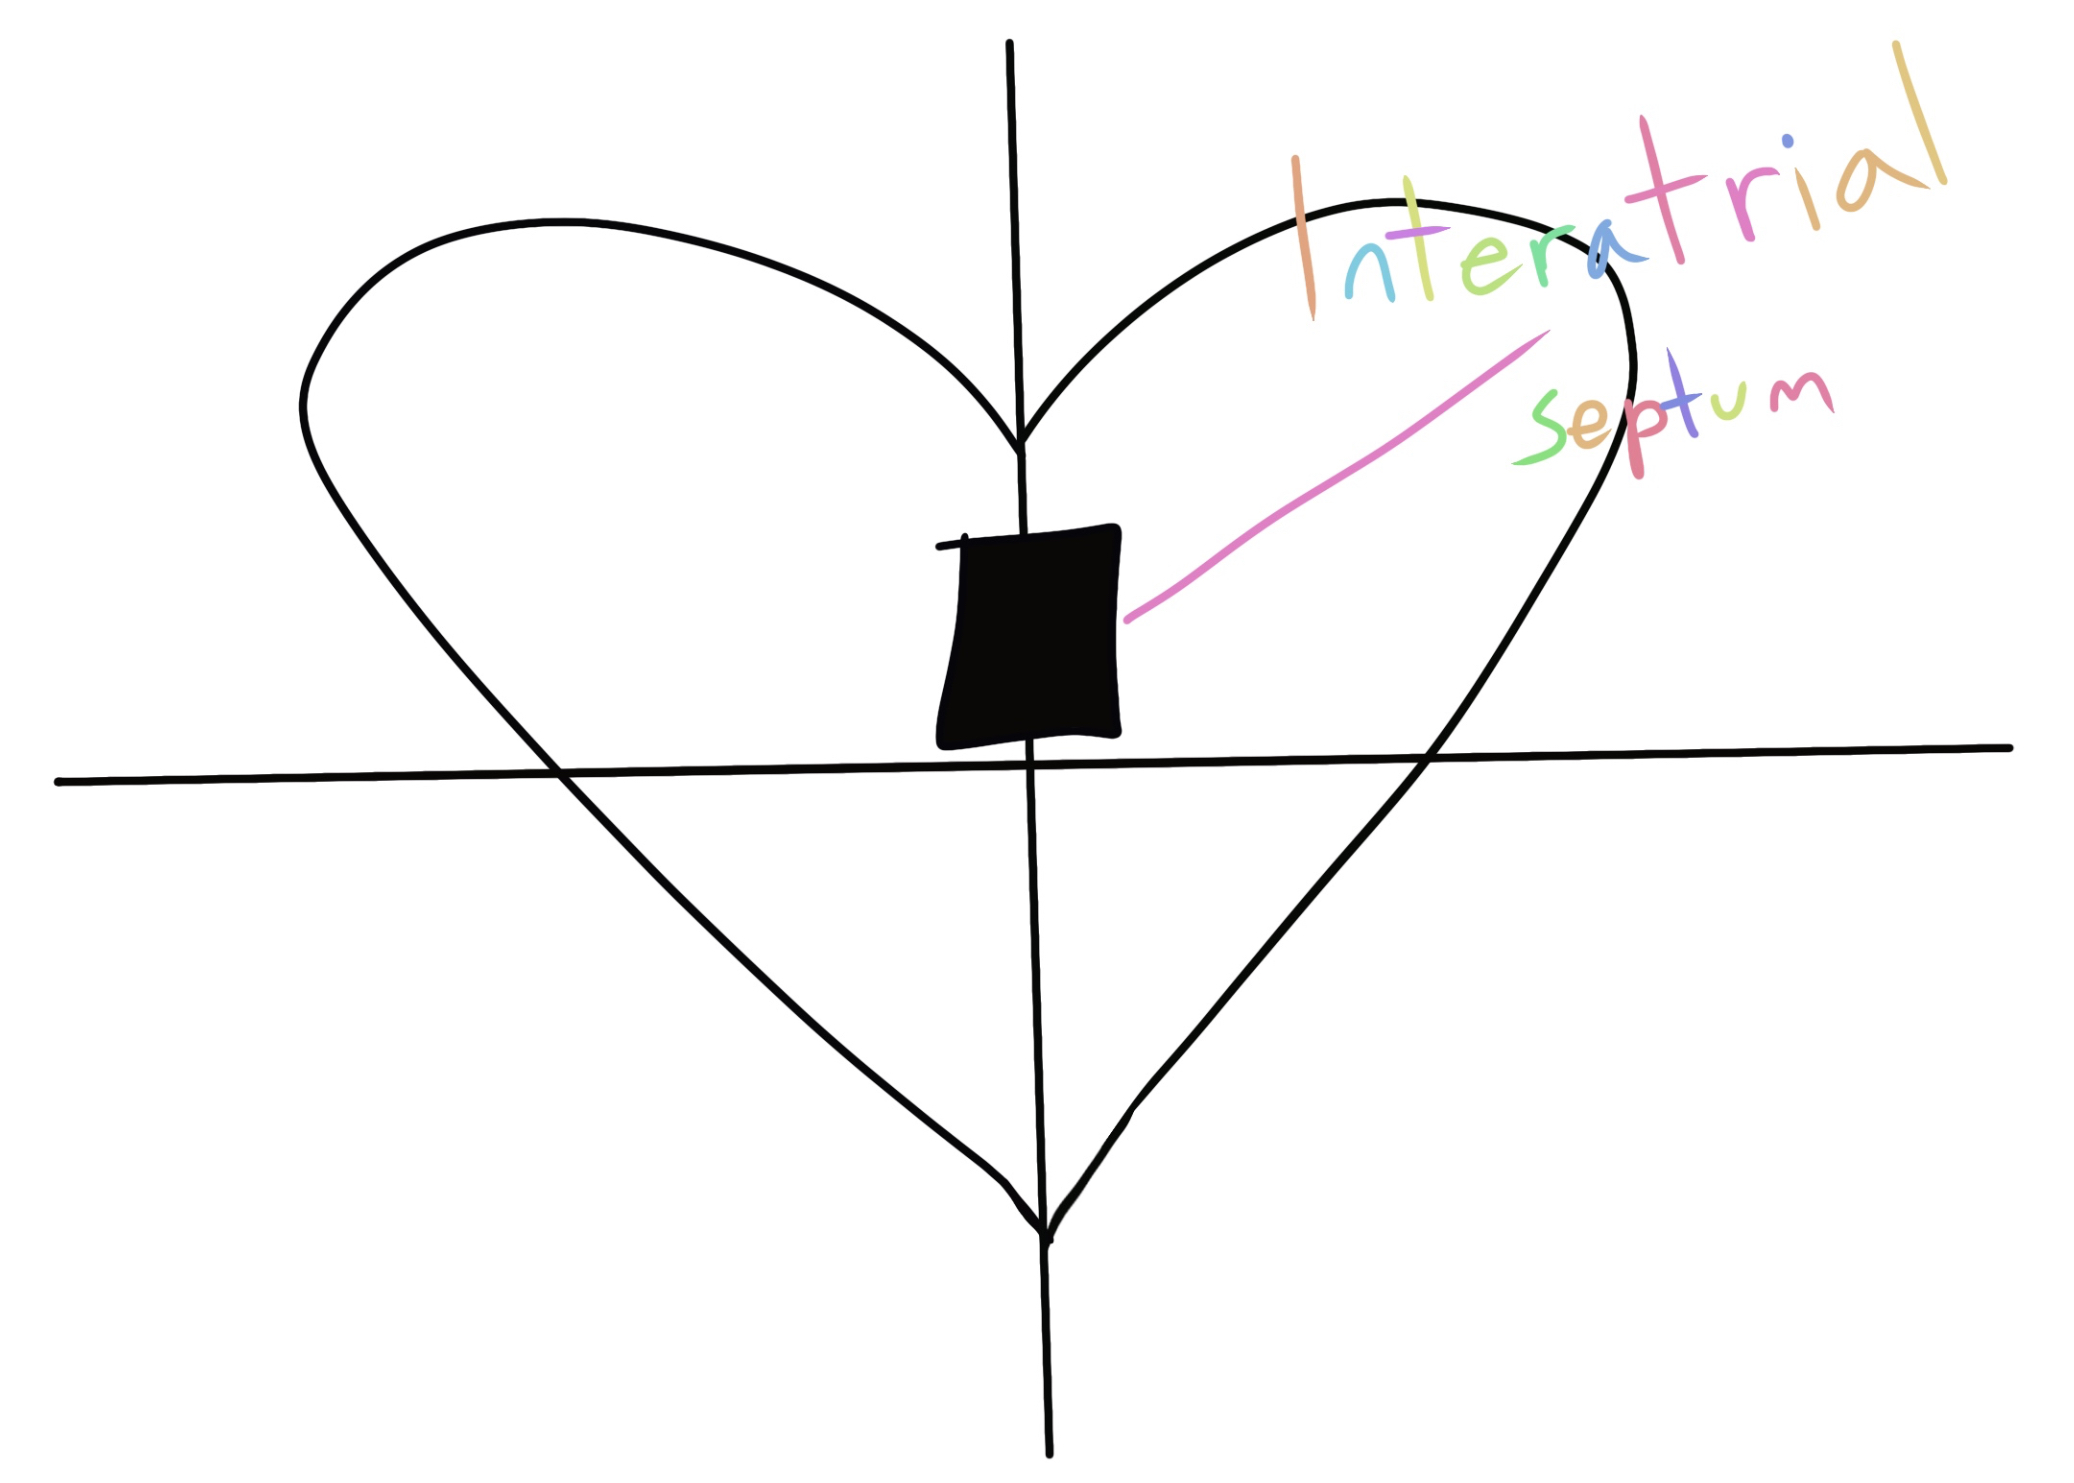 Interatrial
septum